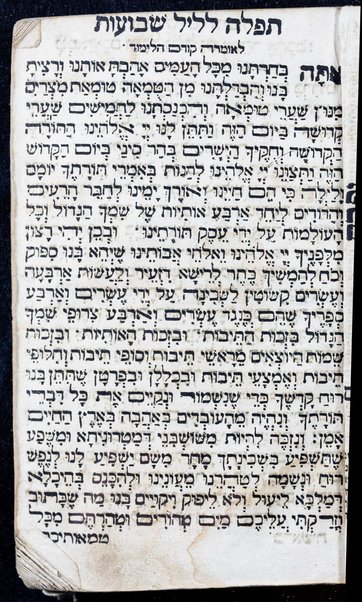 תפלה לליל שבועות
לאומרה קודם הלימוד
אתה בחרתנו מכל העמים אהבת אותנו ורצית
בנו והבדלתנו מן הטמאה טומאת מצרים
מנון שערי טומאה והכנסתנו לחמישים שערי
קדושה ביום הזה ותתן לנו יי אלהינו התורה
הקדושה וחקיך הישרים בהר סיני ביום הקדוש
הזה ותצונו יי אלהינו להגות באמרי תורתך יומם
ולילה כי הם חיינו ואורך ימינו לחבר הרעים
והדודים ליחד ארבע אותיות של שמך הגדול וכל
העולמות על ידי עסק תורתינו ובכן יהי רצון
מלפניך יי אלהינו ואלהי אבותינו שיהא בנו סיפוק
וכח להמשיך כתר לרישא דזעיר ולעשות ארבעה
ועשרים קשוטין לשכינה על ידי עשרים וארבע
ספריך שהם כנגד עשרים וארבע צרופי שמך
הגדול בזכות התיבות ובזכות האותיות ובזכות
שמות היוצאים מראשי תיבות וסופי תיבות וחלופי
תיבות ואמצעי תיבות ובכללן ובפרטן שתתן בנו
רוח קדשך כדי שנשמור ונקיים את כל דברי
תורתך ונהיה מהעובדים באהבה בארץ החיים
אמן ונזכה להיות משושבני דמטרוניתא ומשפע
שתשפיע בשכינתך מחר משם ישפיע לנו לנפש
רוח ונשמה לטהרנו מעונינו ולהכנס בהיכלא
דמלכא ליעול ולא ליפוק ויקויים בנו מה שכתוב
וזרקתי עליכם מים טהורים וטהרתם מכל
טמאותיכם